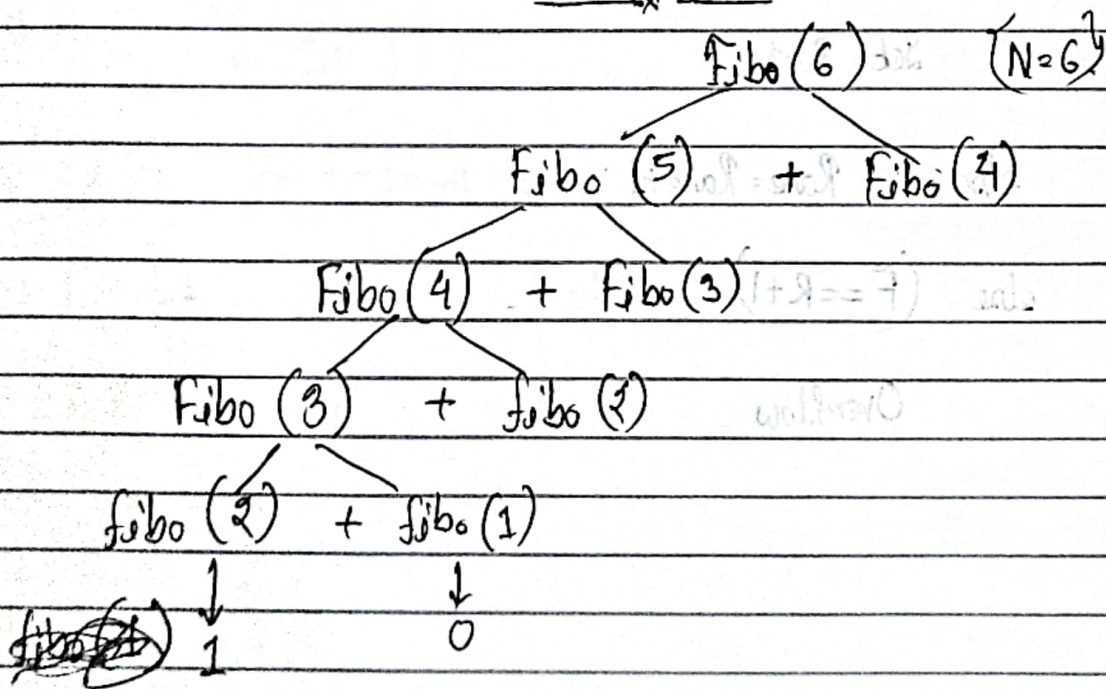 Fibo (6) (N=6)
Fibo (5) + Fibo (4)
Fibo (4) + Fibo (3)
Fibo (3) + fibo (2)
fibo (2) + fibo (1)
↓ ↓
1 0